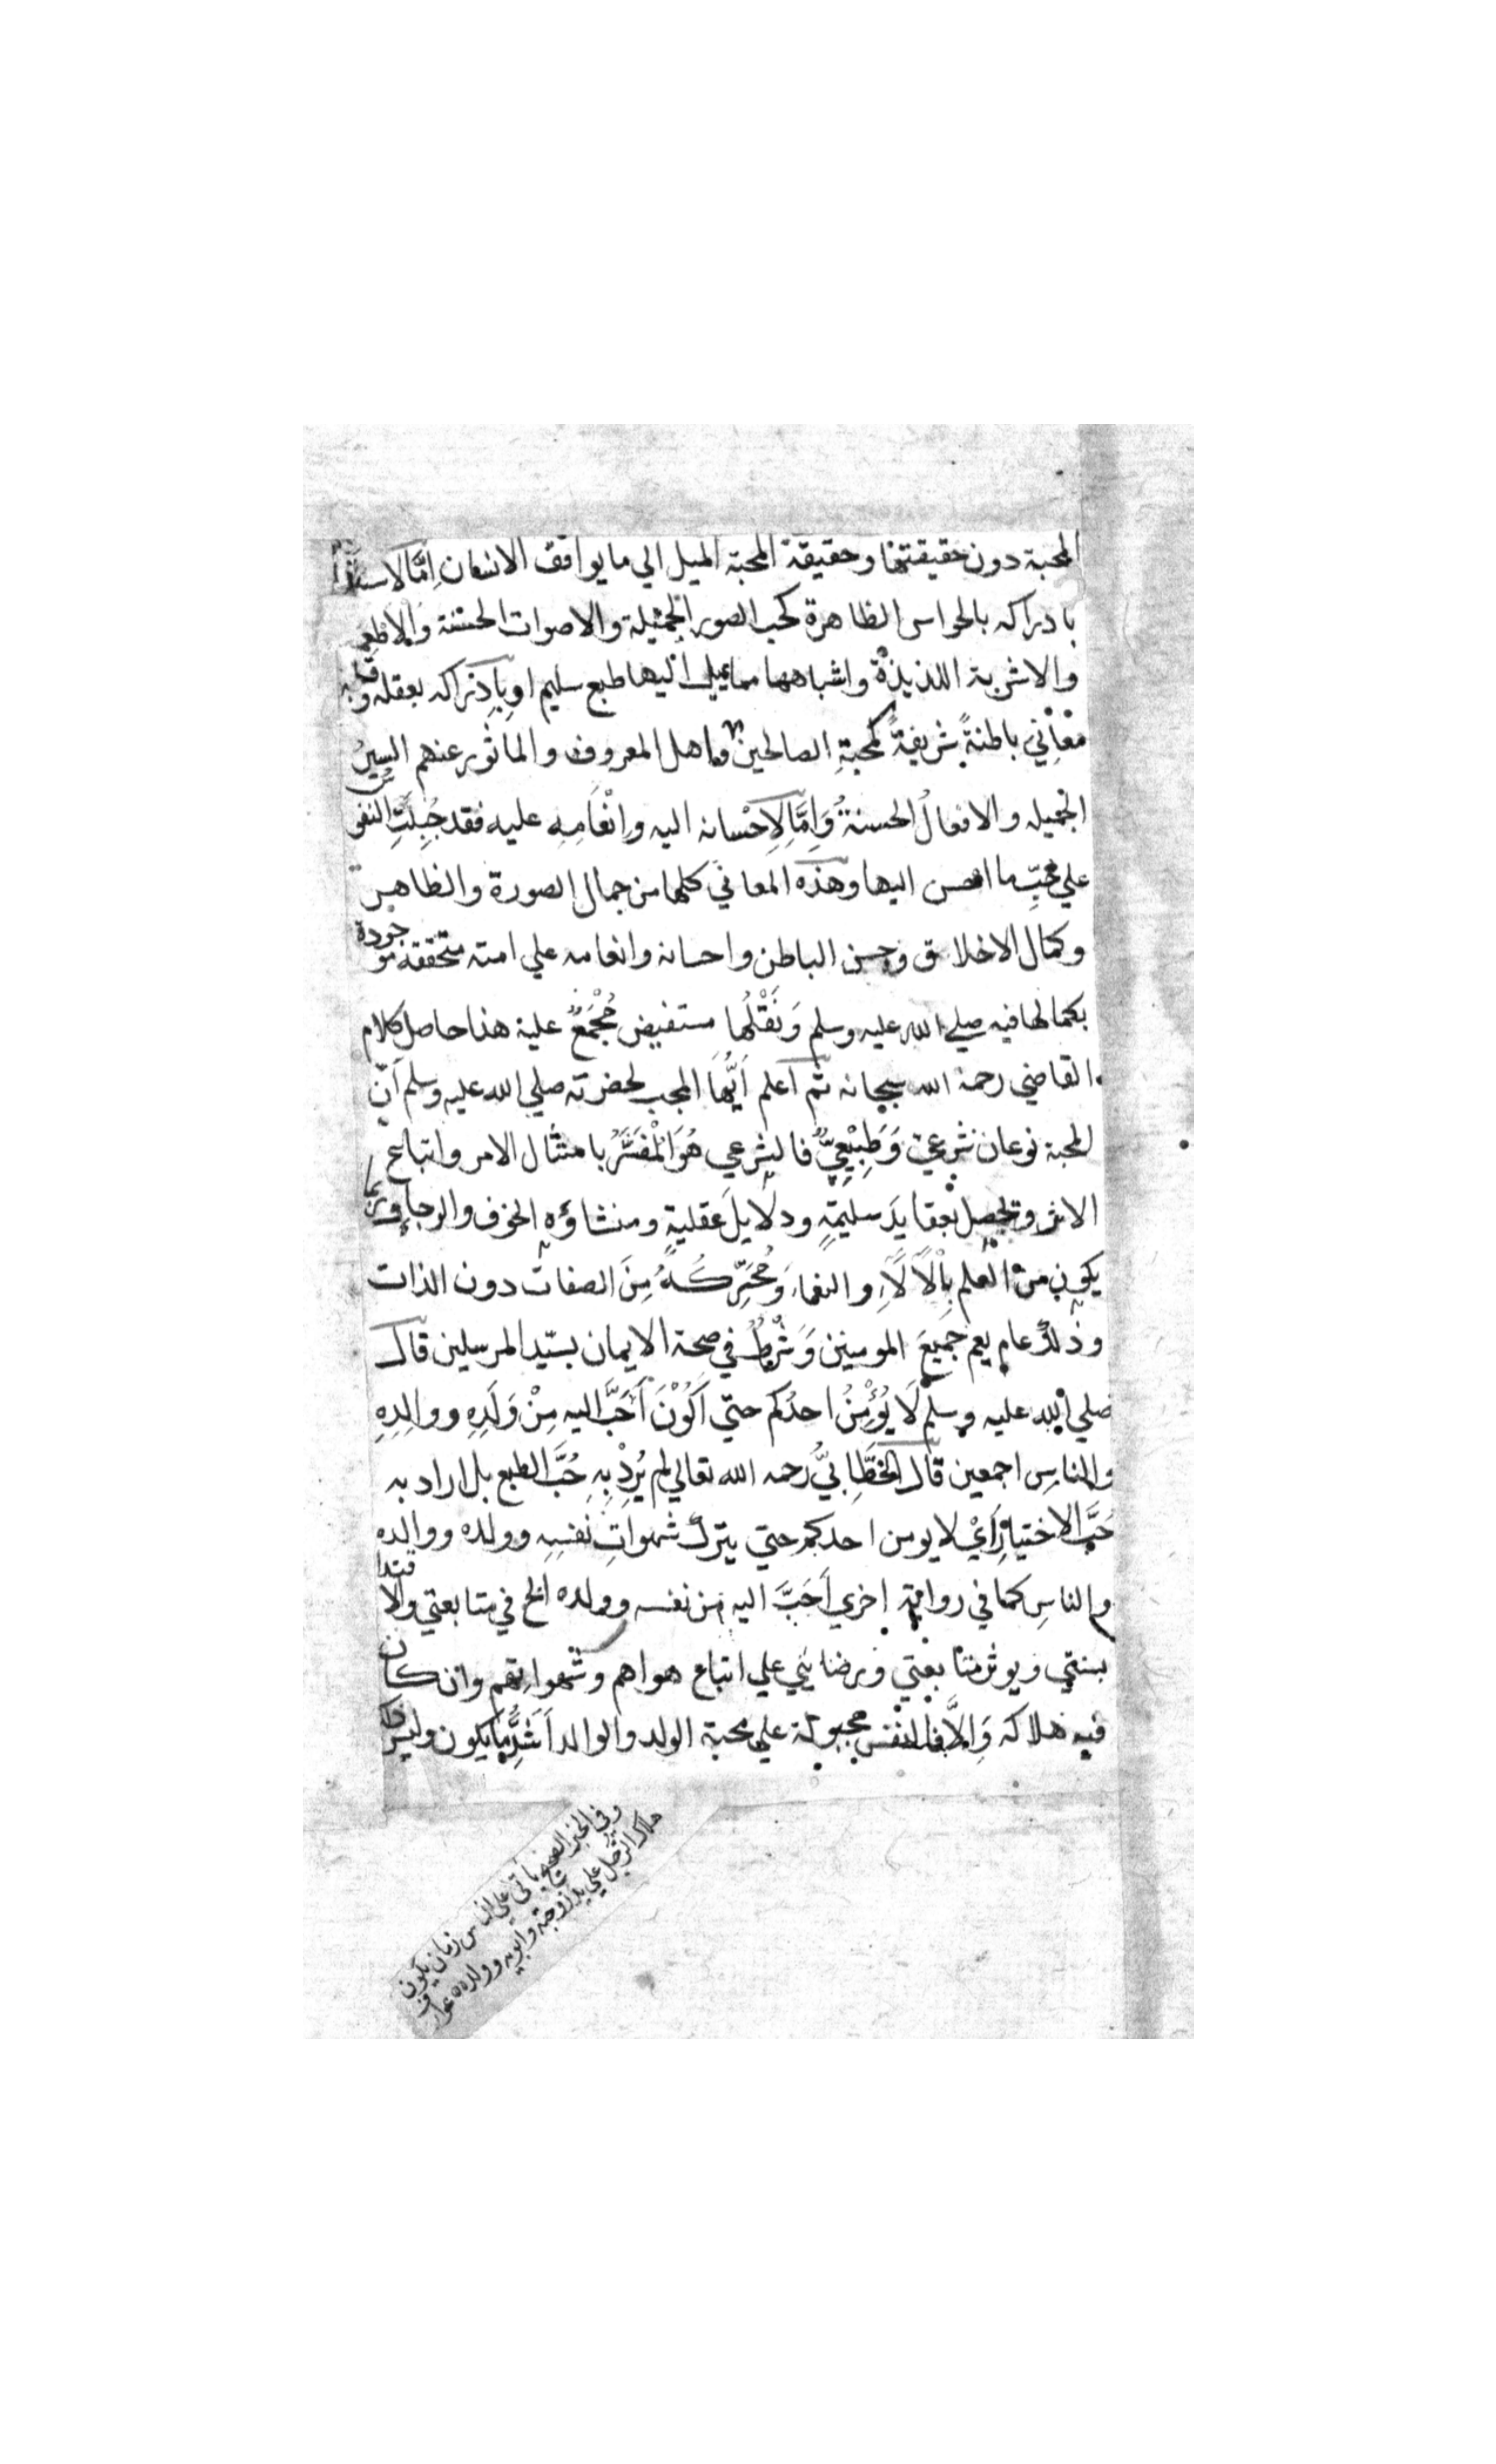 المحبة دون حقيقتها وحقيقة المحبة الميل الي ما يوافق الانسان اِمَّا لاستلذاذ
بادراكه بالحواس الظاهرة كحب الصور الجميلة والاصوات الحسنة والاطعمة
والاشربة اللذيذة واشباهها مما يميل اليها طبع سليم او بِادراكه بعقله وقلبه
معاني باطنةً شريفةً كمحبةِ الصالحين واهل المعروف والماثور عنهم السيرُ
الجميله والافعالُ الحسنةُ وَاِمَّا لِاِحْسانه اليه وانْعَامِهِ عليه فقد جُبِلَتِ النفوس
علي محبِّ ما احسن اليها وهذه المعاني كلها من جمال الصورة والظاهر
وكمال الاخلاق وحسن الباطن واحسانه وانعامه علي امته متحققه موجودة
بكمالها فيه صلي الله عليه وسلم وَنَقْلُهَا مستفيض مُجْمَعٌ علية هذا حاصل كلام
القاضي رحمة الله سبحانه ثم اعلم اَيُّهَا المحب لحضرته صلي الله عليه وسلم اَنَّ
المحبة نوعان شرعيّ وَطَبِيْعِيٌّ فالشرعي هُوَ الْمُفَسَّرُ بامتثال الامر واتباع
الاثر وتحصل بعقايدَ سليمةٍ ودلايلَ عقليةٍ ومنشاؤه الخوف والرجا وربما
يكون من العلم بِالْاَلَاءِ والنعماءِ وَمُحَرِّكُهُ مِنَ الصفات دون الذات
وذلك عام يعم جَمِيعَ المومنين وَشَرْطٌ في صحة الايمان بسيّد المرسلين قال
صلي الله عليه وسلم لَا يُؤْمِنُ احدُكم حتي اَكُوْنَ اَحَبَّ اليه مِنْ وَلَدِهِ ووالِدِهِ
والناسِ اجمعين قال الخَطَّابيُّ رحمه الله تعالي لم يُرِدْ بِهِ حُبَّ الطبع بل اراد به
حُبَّ الاختيارِ اَيْ لا يومن احدكم حتي يترك شهواتِ نفسِهِ وولده ووالده
والناسِ كما في رواية اخري اَحَبَّ اليه من نفسه وولده الخ في متابعتي والاقتدا
بسنتي ويوثر متابعتي ورضايي علي اتباع هواهم وشهواتهم وان كان
فيه هلاكه وَاِلَّا فالنفس مجبولة علي محبة الولد والوالد اَشَدَّ ما يكون وليس
وفي الخبر الصحيح ياتي علي الناس زمان يكون
هلاك الرجل علي يد زوجته وابويه وولده